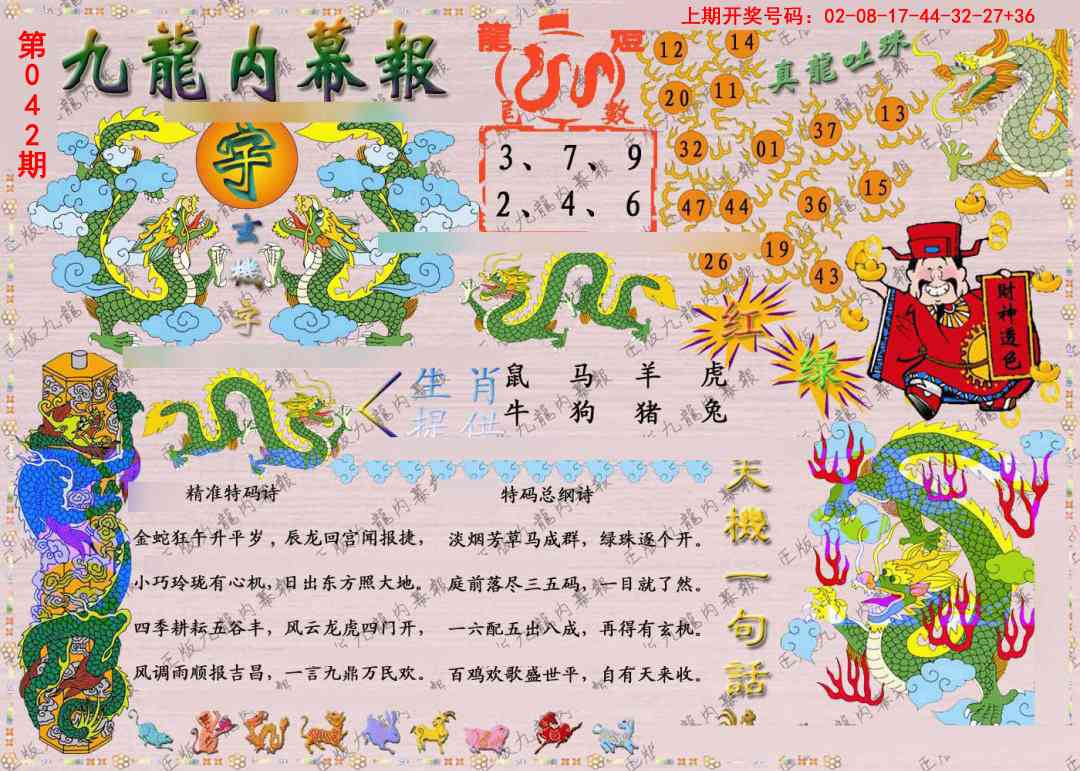 上期开奖号码：02-08-17-44-32-27+36
第042期
九龍内幕報
龍短
尾數
3、7、9
2、4、6
真龍吐珠
12
14
20
11
13
37
32
01
15
47
44
36
19
26
43
字
玄機字
财神透色
红
绿
生肖
提供
鼠 马 羊 虎
牛 狗 猪 兔
精准特码诗
金蛇狂午升平岁，辰龙回宫闻报捷，
小巧玲珑有心机，日出东方照大地。
四季耕耘五谷丰，风云龙虎四门开，
风调雨顺报吉昌，一言九鼎万民欢。
特码总纲诗
淡烟芳草马成群，绿珠逐个开。
庭前落尽三五码，一目就了然。
一六配五出八成，再得有玄机。
百鸡欢歌盛世平，自有天来收。
天機一句話
正版九龍内幕報